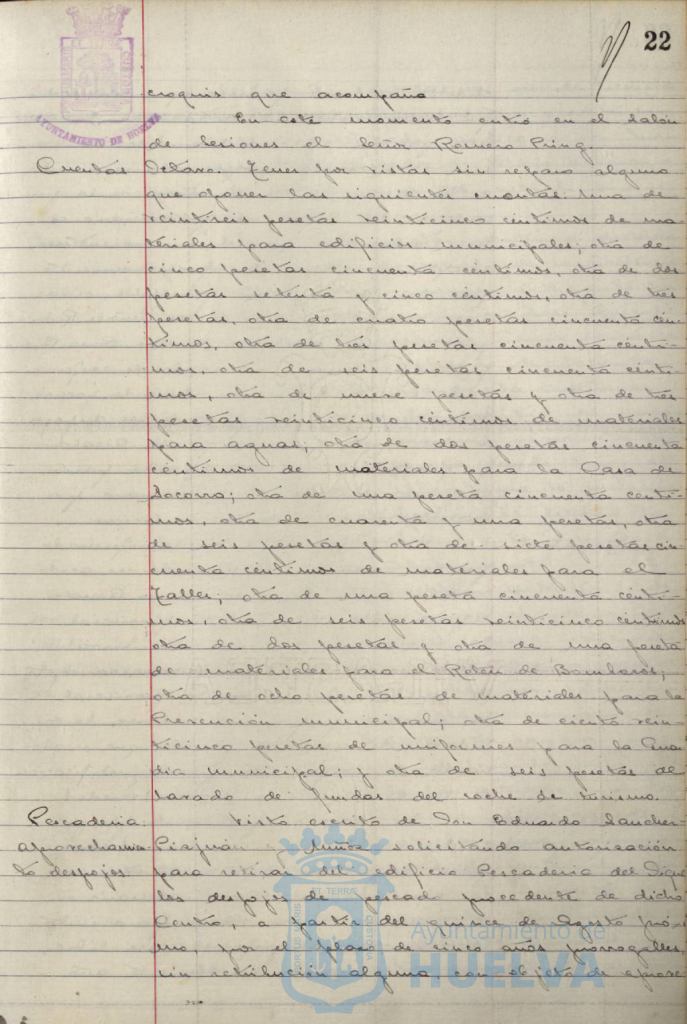 22
AYUNTAMIENTO DE HUELVA
croquis que acompaña
En este momento entró en el Salón
de Sesiones el Señor Romero Pring.
Cuentas
Octavo. Tener por vistas sin reparo alguno
que oponer las siguientes cuentas. Una de
veintiseis pesetas veinticinco céntimos de ma-
teriales para edificios municipales; otra de
cinco pesetas cincuenta céntimos, otra de dos
pesetas setenta y cinco céntimos, otra de tres
pesetas, otra de cuatro pesetas cincuenta cén-
timos, otra de tres pesetas cincuenta cénti-
mos, otra de seis pesetas cincuenta cénti-
mos, otra de nueve pesetas y otra de tres
pesetas veinticinco céntimos de materiales
para aguas; otra de dos pesetas cincuenta
céntimos de materiales para la Casa de
Socorro; otra de una peseta cincuenta cénti-
mos, otra de cuarenta y una pesetas, otra
de seis pesetas y otra de siete pesetas cin-
cuenta céntimos de materiales para el
Taller; otra de una peseta cincuenta cénti-
mos, otra de seis pesetas veinticinco céntimos
otra de dos pesetas y otra de una peseta
de materiales para el Retén de Bomberos;
otra de ocho pesetas de materiales para la
Prevención municipal; otra de ciento vein-
ticinco pesetas de uniformes para la Guar
dia municipal; y otra de seis pesetas de
lavado de fundas del coche de turismo.
Pescaderia.
aprovechamien-
to despojos.
Visto escrito de Don Eduardo Sanchez-
Piajuán y Muñoz solicitando autorización
para retirar del edificio Pescaderia del Dique
los despojos de pescado procedente de dicho
Centro, a partir del quince de Agosto próxi-
mo, por el plazo de cinco años prorrogables,
sin retribución alguna, con objeto de aprove
Ayuntamiento de
HUELVA